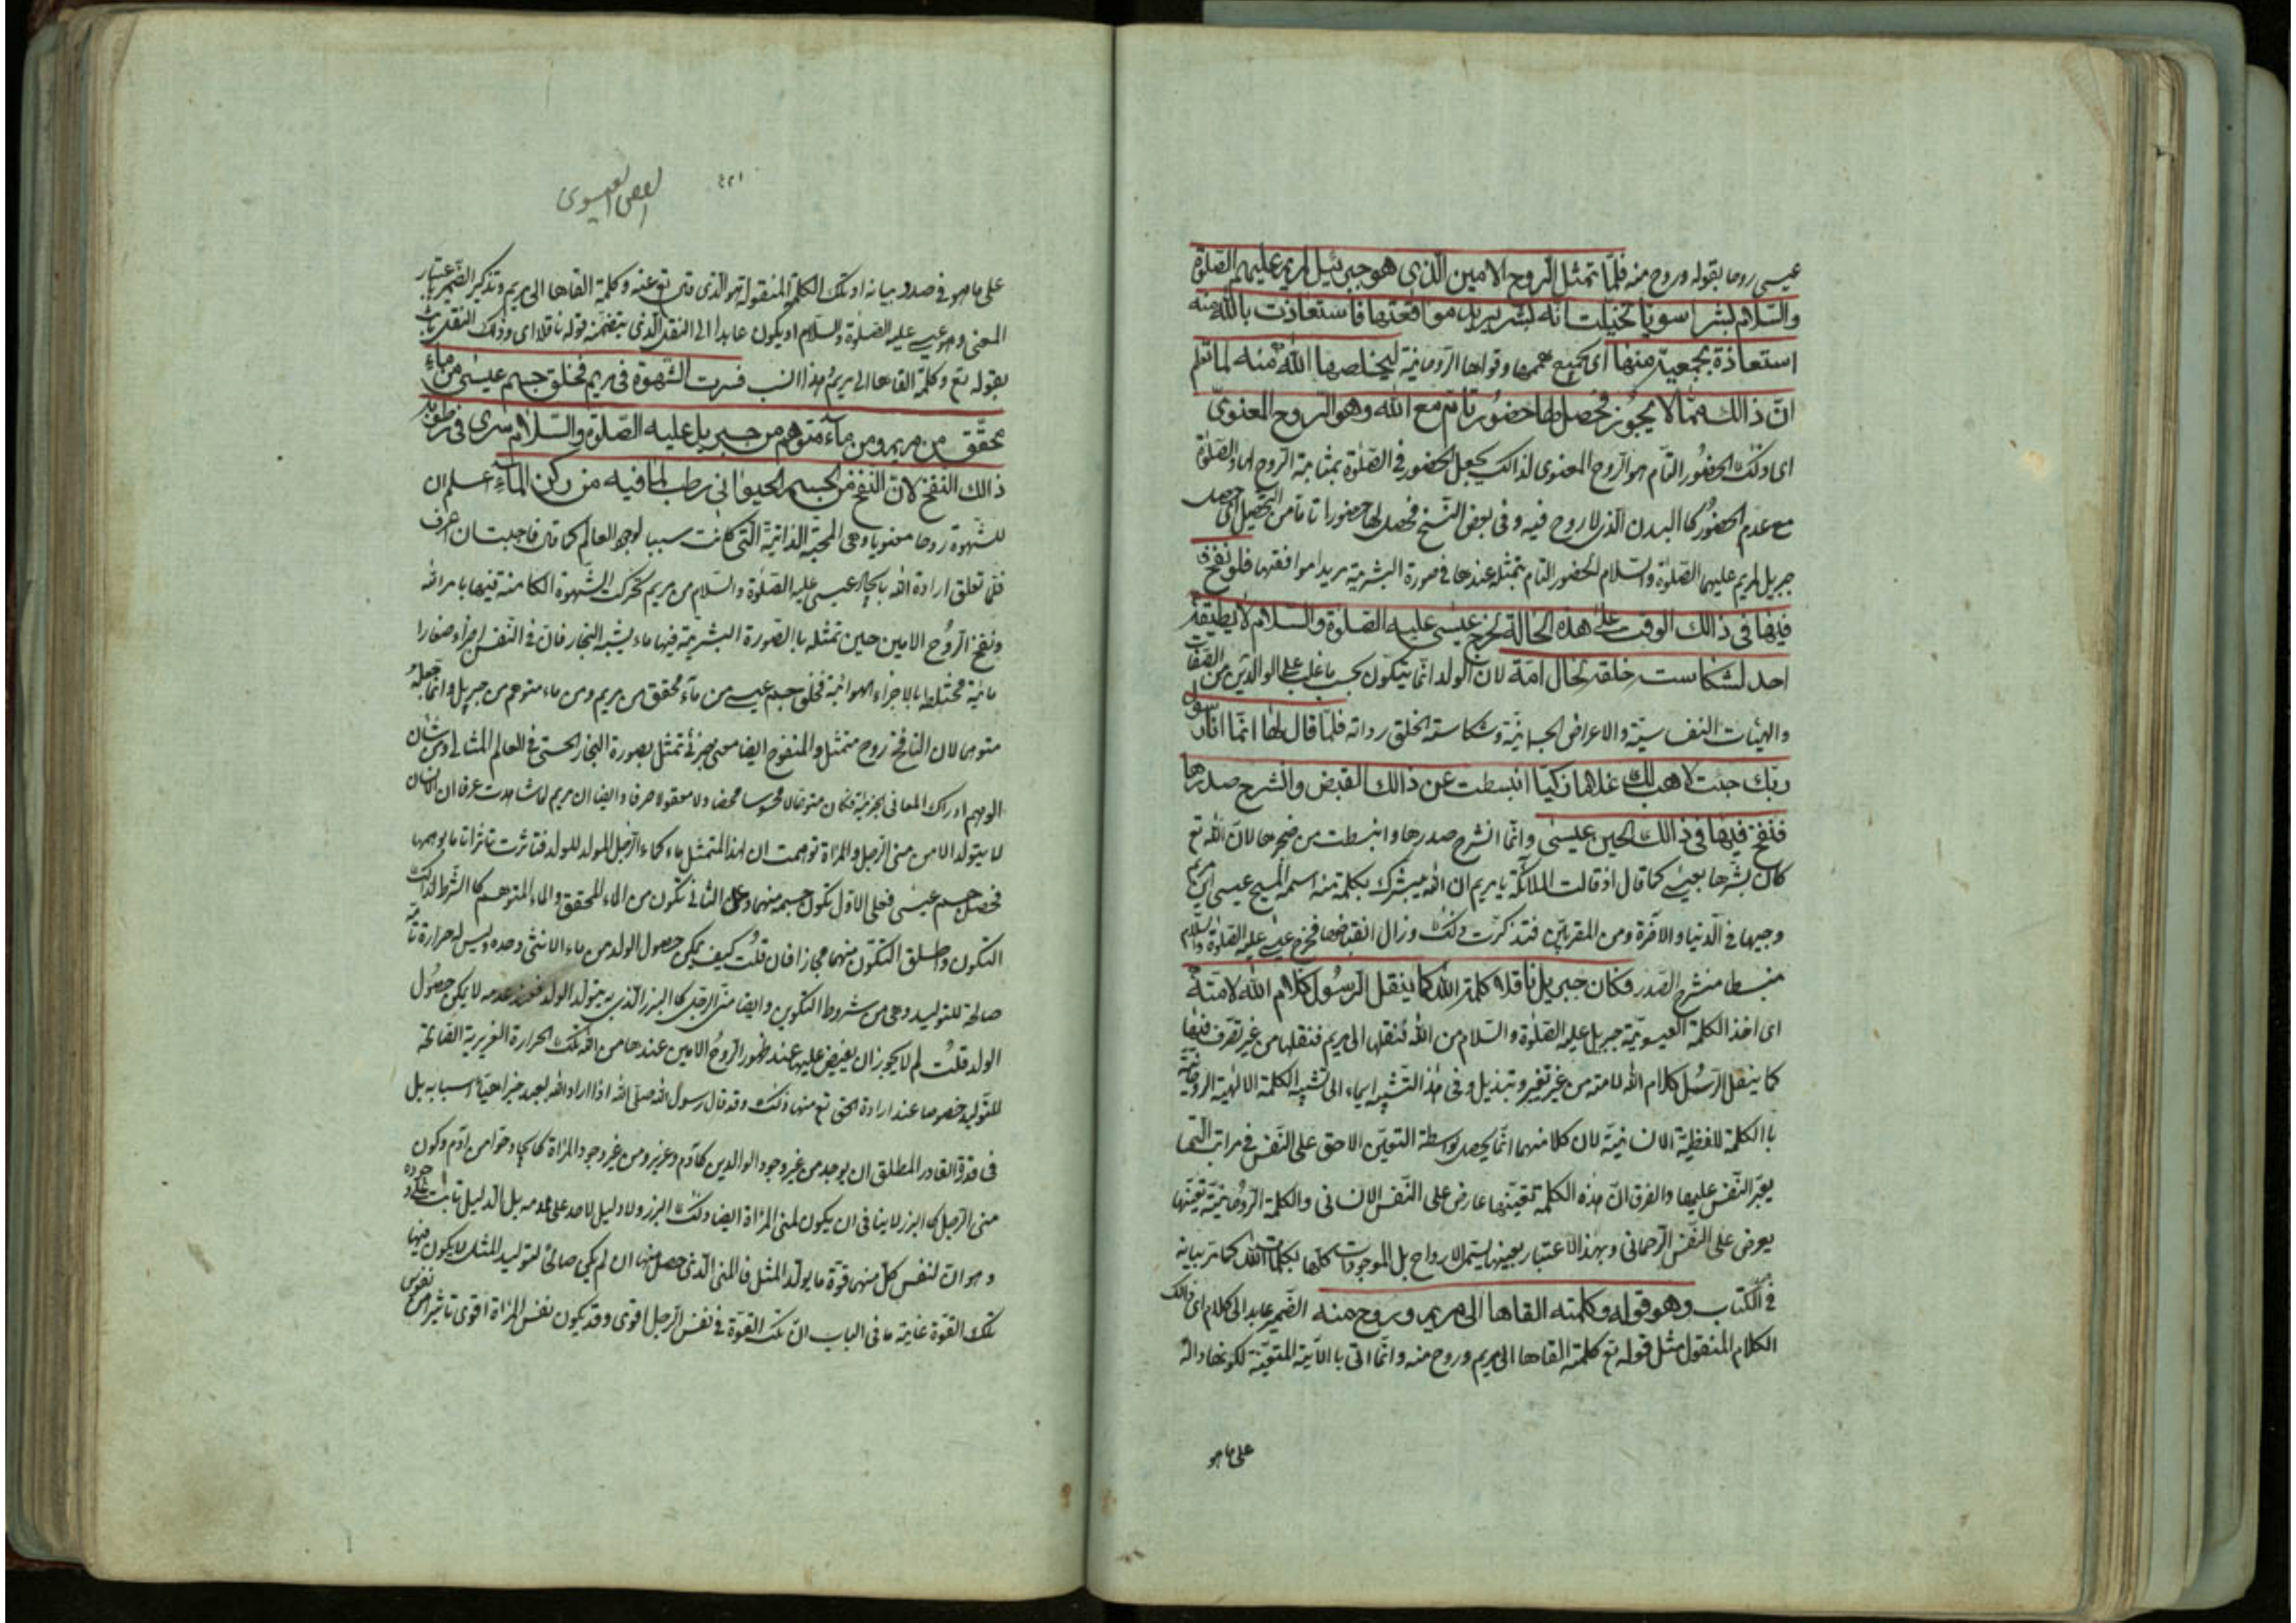 عيسى روحا بقوله وروح منه فلمّا تمثل الروح الامين الّذي هو جبرئيل لمريم عليهم الصّلوة
والسّلام بشرا سويّا تخيلت انّه بشر يريد مواقعتها فاستعاذت بالله منه
استعاذة بجمعية منها اى بجميع هممها وقواها الروحانيّة ليخلّصها الله منه لما تعلم
انّ ذالك ممّا لا يجوز فحصل لها حضور تام مع الله وهو الروح المعنوىّ
اى ذلك الحضور التّام هو الرّوح المعنوى لذالك يجعل الحضور فى الصّلوة بمثابة الرّوح لها والصّلوة
مع عدم الحضور كالبدن الّذى لا روح فيه وفى بعض النّسخ فحصّل لها حضورا تاما من التّحصيل اى حصل
جبريل لمريم عليهما الصّلوة والسّلام الحضور التّام بتمثله عندها فى صورة البشرية مريدا مواقعتها فلو نفخ
فيها فى ذالك الوقت على هذه الحالة لخرج عيسى عليه الصّلوة والسّلام لا يطيقه
احد لشكاسة خلقه لحال امّه لانّ الولد انّما يتكوّن بحسب ما غلب على الوالدين من الصّفات
والهيئات النفسيّة والاعراض الجسمانيّة وشكاسة الخلق رداته فلمّا قال لها انّما انا رسول
ربّك جئت لاهب لك غلاما زكيّا انبسطت عن ذالك القبض وانشرح صدرها
فنفخ فيها فى ذالك الحين عيسى وانّما انشرح صدرها وانبسطت من ضجرها لانّ الله تع
كان بشّرها بعيسى كما قال اذ قالت الملائكة يا مريم ان الله يبشرك بكلمة منه اسمه المسيح عيسى ابن مريم
وجيها فى الدّنيا والآخرة ومن المقرّبين فتذكرت ذلك وزال انقباضها فخرج عيسى عليه الصّلوة والسّلام
منبسطا منشرح الصّدر فكان جبريل ناقلا كلمة الله كما ينقل الرّسول كلام الله لامّته
اى اخذ الكلمة العيسويّة جبريل عليه الصّلوة والسّلام من الله فنقلها الى مريم فنقلها من غير تصرّف فيها
كما ينقل الرّسل كلام الله لامته من غير تغيير وتبديل وفى هذا التّشبيه ايماء الى تشبيه الكلمة الالهيّة الروحانيّة
با الكلمة اللفظيّة الانسانيّة لان كلا منهما انّما يحصل بواسطة التعيّن الاحق على النّفس فى مراتب الّتى
يعبّر النّفس عليها والفرق انّ هذه الكلمة تعيّنها عارض على النّفس الانسانى والكلمة الرّوحانيّة تعيّنها
يعرض على النّفس الرّحمانى وبهذا الاعتبار بعينها يسمّى الارواح بل الموجودات كلّها بكلمات الله كما مرّ بيانه
فى الكتاب وهو قوله وكلمته القاها الى مريم وروح منه الضّمير عايد الى كلام اى ذالك
الكلام المنقول مثل قوله تع كلمته القاها الى مريم وروح منه وانّما اتى با الآية المتعيّنة لكونها دالّة
على ما هو
٤٢١
الفص العيسوى
على ما هو فى صدد بيانه او تلك الكلمة المنقولة هو الّذى قال تع عنه وكلمة القاها الى مريم وتذكير الضّمير باعتبار
المعنى وهو عيسى عليه الصّلوة والسّلام او يكون عايدا الى النقل الّذى يتضمّنه قوله ناقلا اى وذلك النّقل ثابت
بقوله تع وكلمة القاها الى مريم هذا انسب فسرت الشّهوة فى مريم فخلق جسم عيسى من ماء
محقّق من مريم ومن ماء متوهّم من جبريل عليه الصّلوة والسّلام سرى فى رطوبة
ذالك النّفخ لانّ النّفخ من الجسم الحيوانى رطب لما فيه من ركن الماء اعلم ان
للشّهوة روحا معنويا وهى المحبّة الذاتيّة الّتى كانت سببا لوجود العالم كما قال فاحببت ان اعرف
فلمّا تعلق ارادة الله بايجاد عيسى عليه الصّلوة والسّلام من مريم تحركت الشّهوة الكامنة فيها بامر الله
ونفخ الرّوح الامين حين تمثله با الصّورة البشريّة فيها ماء يشبه البخار فان فى النّفس اجزاء صغارا
مائيّة مختلطة بالاجزاء الهوائيّة فخلق جسم عيسى من ماء محقق من مريم ومن ماء متوهم من جبريل وانّما جعله
متوهما لان النّافخ روح متمثل والمنفوخ ايضا معنى جزئى تمثل بصورة البخار الحسىّ فى العالم المثالى ومن شان
الوهم ادراك المعانى الجزئيّة فكان متوهّما لا محسوسا محضا ولا معقولا صرفا وايضا ان مريم لما شاهدت عرفا ان الانسان
لا يتولد الّا من منى الرّجل والمراة توهمت ان هذا المتمثّل ماء كماء الرّجل المولد للولد فتاثرت تاثرا تاما بوهمها
فحصل جسم عيسى فعلى الاوّل تكوّن جسمه منهما وعلى الثانى تكون من الماء المحقق والماء المتوهم كا الشّرط لذالك
التكون واطلق التكوّن منهما مجازا فان قلت كيف يمكن حصول الولد من ماء الانثى وحده وليس له حرارة تامّة
صالحة للتوليد وهى من شروط التكوين وايضا منى الرّجل كا البزر الّذى به يتولد الولد فعند عدمه لا يمكن حصول
الولد قلت لم لا يجوز ان يفيض عليها عند ظهور الرّوح الامين عندها من الله تلك الحرارة الغريزية القابلة
للتّوليد خصوصا عند ارادة الحق تع منها ذلك وقد قال رسول الله صلّى الله اذا اراد الله بعبد خيرا هيّأ اسبابه بل
فى قدرة القادر المطلق ان يوجد من غير وجود الوالدين كآدم وعزير ومن غير وجود المراة كما يجاد حوّا من آدم وكون
منى الرّجل كا البزر لا ينافى ان يكون لمنى المراة ايضا ذلك البزر ولا دليل لاحد على عدمه بل الدليل ثابت على وجوده
وهو انّ لنفس كلّ منهما قوّة ما يولّد المثل فالمنى الّذى حصل منها ان لم يكن صالحا لتوليد المثل لا يكون فيها
تلك القوّة غاية ما فى الباب انّ تلك القوّة فى نفس الرّجل اقوى وقد يكون نفس المراة اقوى تاثيرا من نفوس